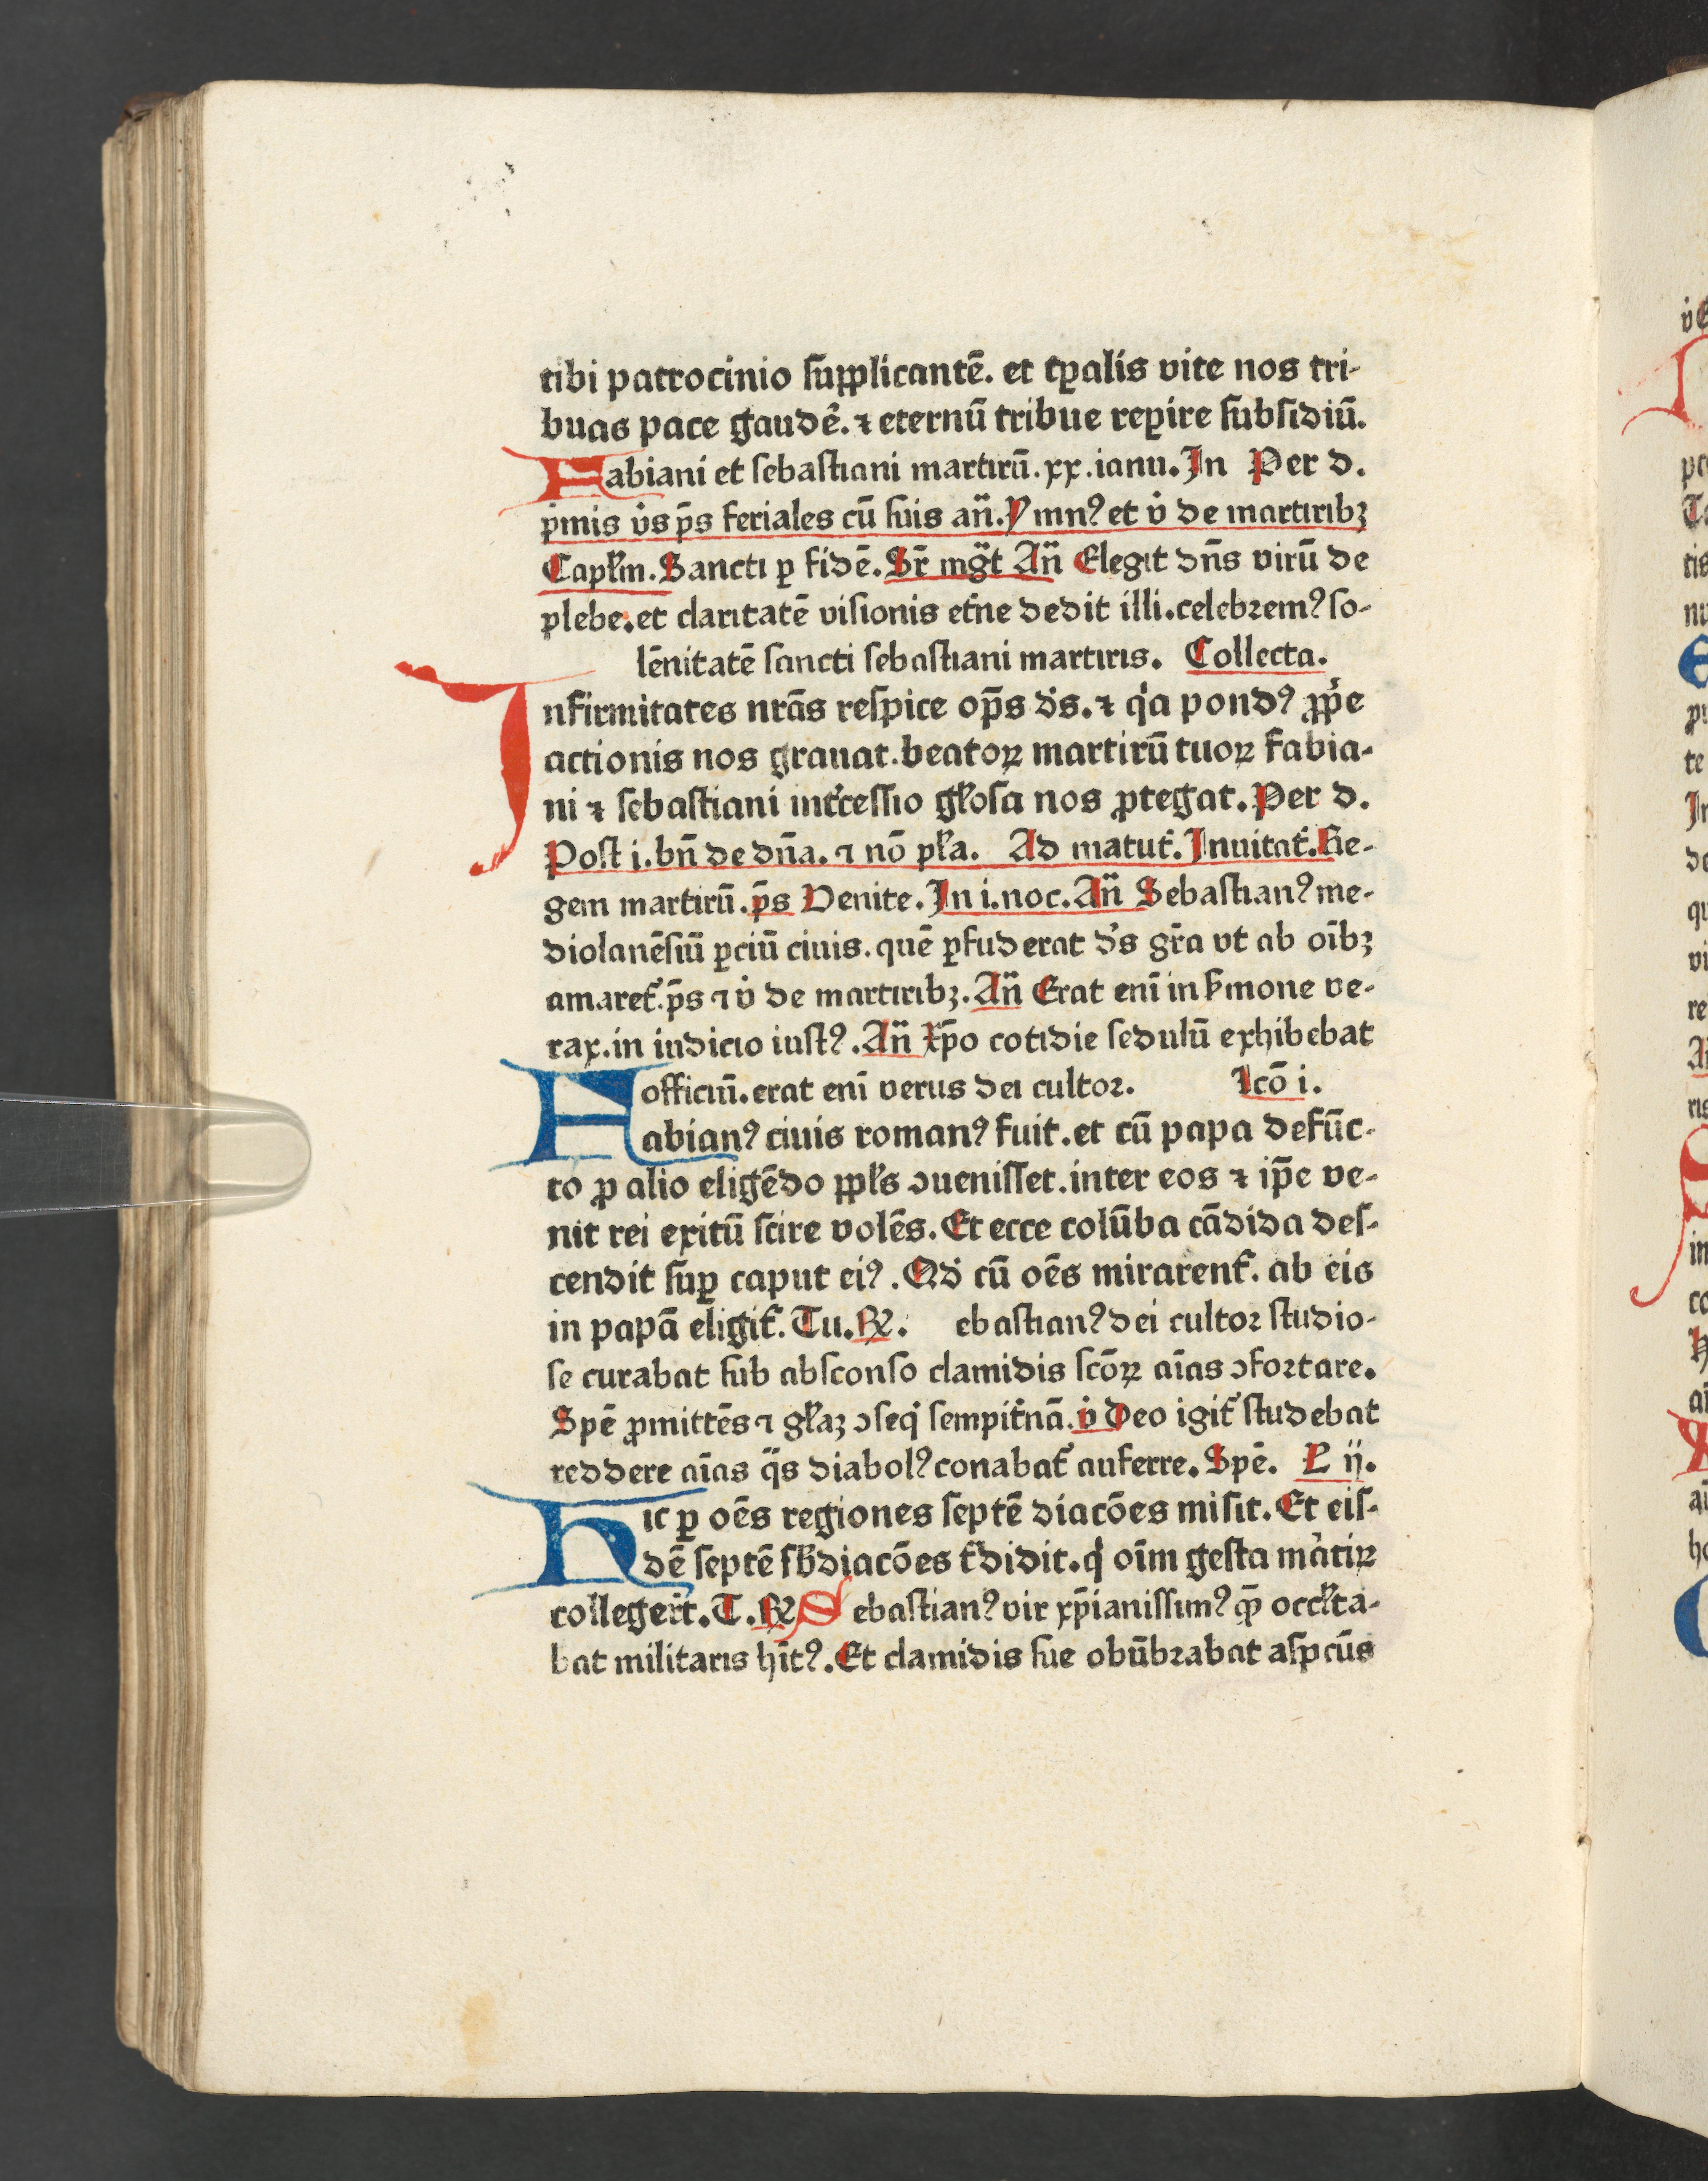 tibi patrocinio ſupplicantē. et tꝑalis vite nos tri-
buas pace gaudē. ⁊ eternū tribue reꝑire ſubſidiū.
Fabiani et ſebaſtiani martirū. xx. ianu. In Per d.
pͥmis vͦs p̄s feriales cū ſuis an̄. Ymnꝰ et v̇ de martiribꝫ
Capłm. Sancti ꝑ fidē. Sr̄ mḡt An̄ Elegit dn̄s virū de
plebe. et claritatē viſionis et̄ne dedit illi. celebremꝰ ſo-
lēnitatē ſancti ſebaſtiani martiris. Collecta.
Infirmitates nrās reſpice op̄s ds̄. ⁊ qͥa pondꝰ ꝓpͥe
actionis nos grauat. beatoꝝ martirū tuoꝝ fabia-
ni ⁊ ſebaſtiani int̄ceſſio głoſa nos ꝓtegat. Per d.
Poſt i. bn̄ de dn̄a. ⁊ nō pła. Ad matut̄. Inuitat̄. Re-
gem martirū. p̄s Venite. In i. noc. An̄ Sebaſtianꝰ me-
diolanēſiū ꝑciū ciuis. quē ꝑfuderat ds̄ gr̄a vt ab oībꝫ
amaret̄. p̄s ⁊ v̇ de martiribꝫ. An̄ Erat enī in ẜmone ve-
rax. in iudicio iuſtꝰ. An̄ Xp̄o cotidie ſedulū exhibebat
officiū. erat enī verus dei cultor. Lcō i.
Fabianꝰ ciuis romanꝰ fuit. et cū papa defūc-
to ꝓ alio eligēdo ppłs ↄueniſſet. inter eos ⁊ ip̄e ve-
nit rei exitū ſcire volēs. Et ecce colūba cādida deſ-
cendit ſuꝑ caput eiꝰ. Qd̓ cū oēs mirarent̄. ab eis
in papā eligit̄. Tu. ℟. ebaſtianꝰ dei cultor ſtudio-
ſe curabat ſub abſconſo clamidis ſcōꝝ aīas ↄfortare.
Spē ꝓmittēs ⁊ głaꝫ ↄſeqͥ ſempit̄nā. v̇ Deo igit̄ ſtudebat
reddere aīas qͣs diabolꝰ conabat̄ auferre. Spē. L ij.
Hic ꝑ oēs regiones ſeptē diacōes miſit. Et eiſ-
dē ſeptē ſb̄diacōes tͣdidit. qͥ oīm geſta mᷓtiꝝ
collegert̄. T. ℟ Sebaſtianꝰ vir xp̄ianiſſimꝰ qᷓꝫ occłta-
bat militaris hītꝰ. Et clamidis ſue obūbrabat aſpcūs